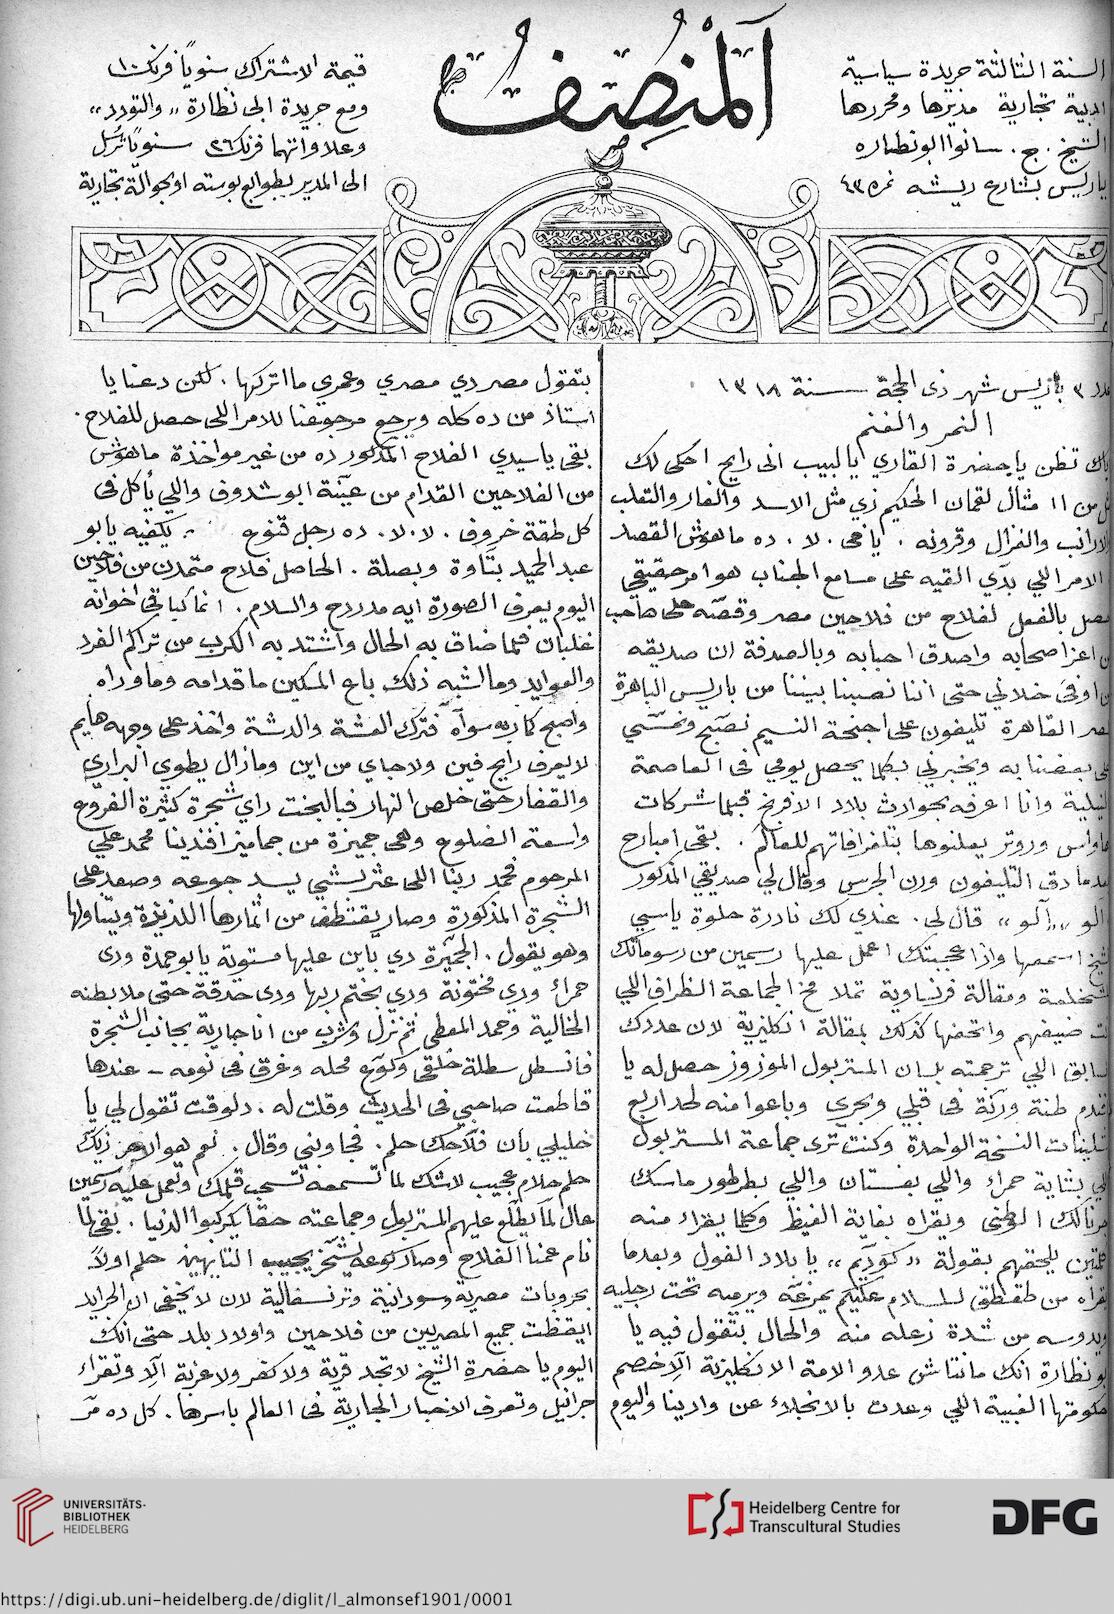 المنصف
السنة الثالثة جريدة سياسية
ادبية تجارية مديرها ومحررها
الشيخ ج. سانوا ابو نظاره
باريس بشارع ريشه نمره ٤٣
قيمة الاشتراك سنويًا فرنك ١٠
ومع جريدة ابى نظارة ״ والتودد ״
وعلاواتهما فرنك ٢٦ سنويًا ترسل
الى المدير بطوابع بوسته او بحوالة تجارية
عدد ٣ باريس شهر ذى الحجة سنة ١٣١٨
النمر والغنم
تظن يا حضرة القاري يا لبيب انى رايح احكى لك
من امثال لقمان الحكيم زي مثل الاسد والفار والثعلب
والارانب والغزال وقرونه . يا فهى . لا . ده ماهوش القصد
الامر اللي بدّي القيه على مسامع الجناب هو امر حقيقي
حصل بالفعل لفلاح من فلاحين مصر وقصّه على صاحب
من اعز اصحابه واصدق احبابه وبالصدفة ان صديقه
من اوفى خلاني حتى اننا نصبنا بيننا من باريس الباهرة
لمصر القاهرة تليفون على اجنحة النسيم نصبّح ونمسّي
على بعضنا به ويخبرني بكلما يحصل يومي فى العاصمة
النيلية وانا اعرفه بحوادث بلاد الافرنج قبلما شركات
هاواس وروتر يعلنوها بتلغرافاتهم للعالم . بقى امبارح
بعدما دق التليفون ورن الجرس وقال لي صديقي المذكور
آلو ״ آلو ״ قال لى . عندي لك نادرة حلوة يا سي
الشيخ اسمعها واذا عجبتك اعمل عليها رسمين من رسوماتك
ومقالة فرنساوية تملا مخ الجماعة الظراف اللي
ضيفهم واتحفها كذلك بمقالة انكليزية لان عددك
السابق اللي ترجمته بلسان المستربول الموزوز حصل له يا
افندم طنة ورنة فى قبلي وبحري وباعوا منه لحد اربع
شلينات النسخة الواحدة وكنت ترى جماعة المستربول
اللي بشابة حمراء واللي بفستان واللي بطرطور ماسك
جرنالك الوطنى ويقراه بغاية الغيظ وكلما يقراء منه
كلمتين يلحقهم بقولة ״ كودّيم ״ يا بلاد الفول وبعدما
يقراه من طقطق لسلام عليكم يمزعه ويرميه تحت رجليه
ويدوسه من شدة زعله منه والحال بتقول فيه يا
بو نظارة انك مانتاش عدو الامة الانكليزية الّا خصم
حكومتها الغبية اللي وعدت بالانجلاء عن وادينا واليوم
بتقول مصر دي مصري وعمري ما اتركها . لكن دعنا يا
استاذ من ده كله ويرجع مرجوعنا للامر اللى حصل للفلاح .
بقى يا سيدي الفلاح المذكور ده من غير مواخذة ماهوش
من الفلاحين القدام من عيّنة ابو شدوف واللي يأكل فى
كل طقة خروف . لا . لا . ده رجل قنوع . يكفيه يا بو
عبد الحميد بتّاوة وبصلة . الحاصل فلاح متمدن من فلاحين
اليوم يعرف الصورة ايه مدردح والسلام . انما كباقى اخوانه
غلبان فلما ضاق به الحال واشتد به الكرب من تراكم الفرد
والعوايد وما اشبه ذلك باع المسكين ما قدامه وما وراه
واصبح كما ربه سواه فترك العشة والدشة واخذ على وجهه هايم
لا يعرف رايح فين ولا جاي من اين وما زال يطوي البراري
والقفار حتى خلص النهار فبالبخت راي شجرة كثيرة الفروع
واسعة الضلوع وهى جميزة من جماميز افندينا محمد علي
المرحوم فحمد ربنا اللى عثر بشي يسد جوعه وصعد على
الشجرة المذكورة وصار يقتطف من اثمارها اللذيذة ويتناولها
وهو يقول . الجميّزة دي باين عليها مستوية يا بو حمدة ودى
حمراء ودي مختونة ودي بختم ربها ودى حدقة حتى ملا بطنه
الخالية وحمد المعطي ثم نزل وشرب من اناجارية بجانب الشجرة
فانسطل سطلة خلقى وكوّع محله وغرق فى نومه - عندها
قاطعت صاحبي فى الحديث وقلت له . دلوقت تقول لي يا
خليلي بان فلّاحك حلم . فجاوبنى وقال . نعم هو الامر زيك
حلم حلام عجيب لاشك لما تسمعه تسحب قلمك وتعمل عليه رسمين
عال لما يطّلع عليهم المستربول وجماعته حقا يكركبوا الدنيا . بقى لما
نام عمنا الفلاح وصار كوعه يشخّر يجيب التايهين حلم اولًا
بحروبات مصرية وسودانية وترنسفالية لان لا يخفى ان الجرايد
ايقظت جميع المصريين من فلاحين واولاد بلد حتى انك
اليوم يا حضرة الشيخ لا تجد قرية ولا كفر ولا عزبة الّا وتقراء
جرانيل وتعرف الاخبار الجارية فى العالم باسرها . كل ده مرّ
UNIVERSITÄTS-
BIBLIOTHEK
HEIDELBERG
Heidelberg Centre for
Transcultural Studies
DFG
https://digi.ub.uni-heidelberg.de/diglit/l_almonsef1901/0001